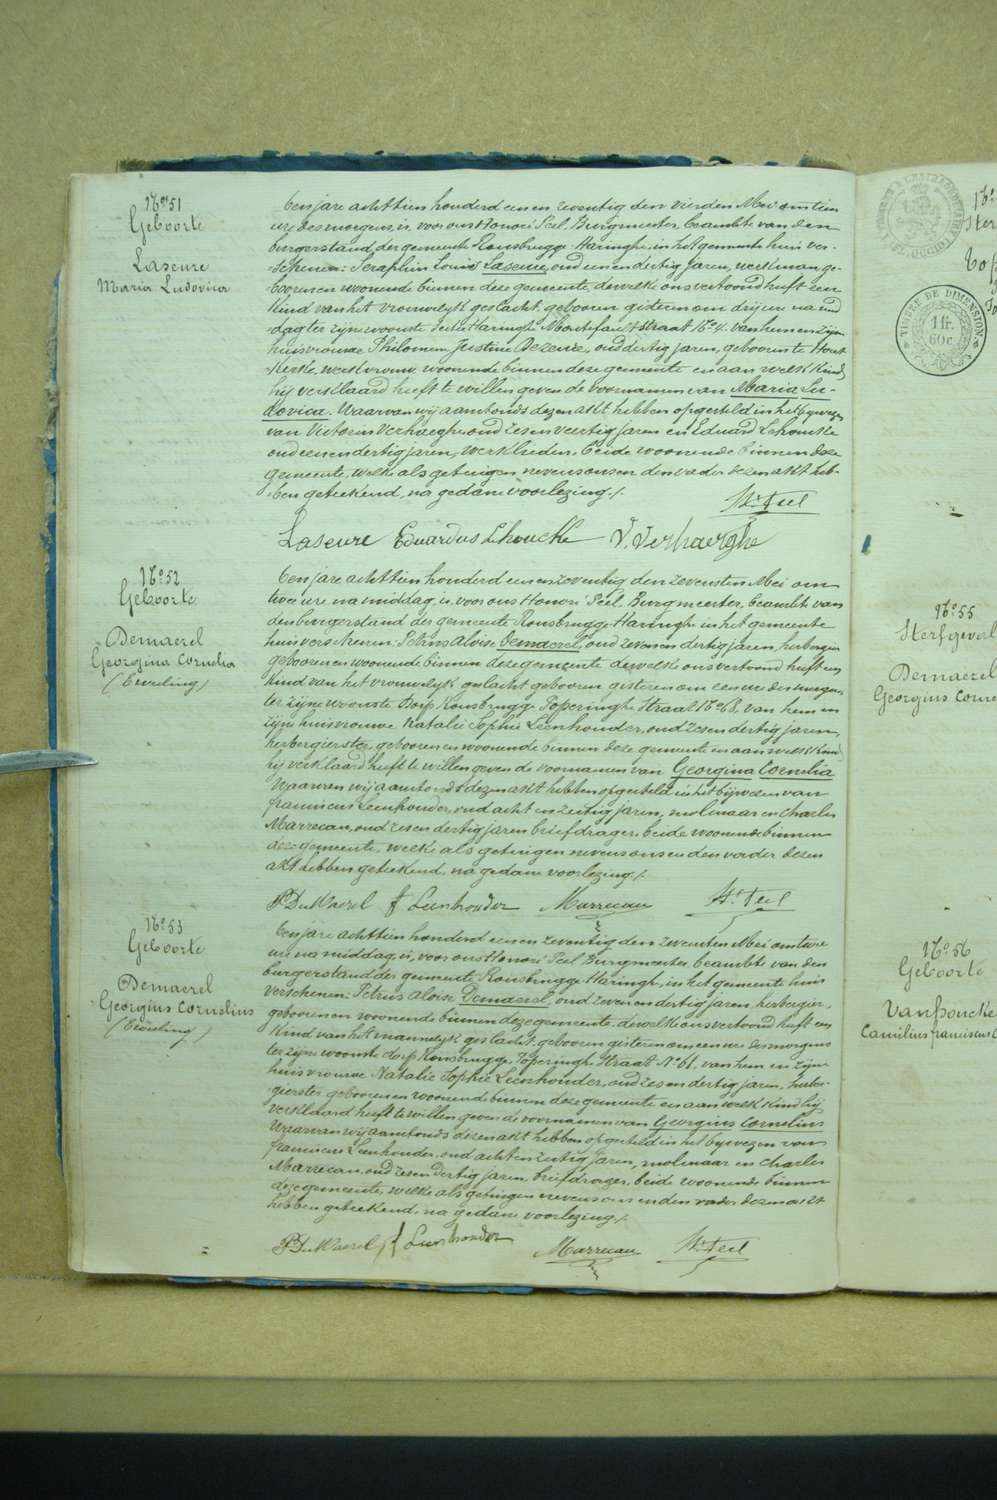 N° 51
Geboorte
Laseure
Maria Ludovica
Ten jare achttien honderd een en zeventig den vierden Mei om tien
ure des morgens, is voor ons Honoré Peel, Burgmeester, beambte van den
burgerstand der gemeente Rousbrugge-Haringhe, in het gemeente huis ver-
schenen: Seraphin Louis Laseure, oud een en dertig jaren, werkman ge-
booren en woonende binnen deze gemeente, dewelke ons vertoond heeft een
kind van het vrouwelyk geslacht, geboren gisteren om drij ure na mid-
dag ter zijne woonste te Haringhe straat N° 4. van hem en zijne
huisvrouwe Philomene Justine Dezeure, oud dertig jaren, geboren te Hout-
kerke, werkvrouw, woonende binnen deze gemeente en aan welk kind
hij verklaard heeft te willen geven de voornamen van Maria Lu-
dovica. Waarvan wij aanstonds dezen akt hebben opgesteld in het bijwezen
van Victor Verhaeghe, oud zes en veertig jaren en Eduard Lehoucke
oud een en dertig jaren, werklieden, beide woonende binnen deze
gemeente, welke als getuigen nevens ons en den vader dezen akt heb-
ben geteekend, na gedane voorlezing ./.
Hré Peel
Laseure Eduardus Lehoucke V. Verhaeghe
N° 52
Geboorte
Demaerel
Georgina Cornelia
(Tweeling)
Ten jare achttien honderd een en zeventig den zevensten Mei om
twee ure namiddag, is voor ons Honoré Peel, Burgmeester, beambte van
den burgerstand der gemeente Rousbrugge-Haringhe in het gemeente
huis verschenen: Petrus Aloise Demaerel, oud zeven en dertig jaren, herbergier
geboren en woonende binnen deze gemeente dewelke ons vertoond heeft een
kind van het vrouwelyk geslacht geboren gisteren om een ure des morgens
ter zijne woonste Dorp Rousbrugge Poperinghe Straat N° 61, van hem en
zijne huisvrouwe Natalie Sophie Leenhouder, oud zes en dertig jaren,
herbergierster, geboren en woonende binnen deze gemeente en aan welk kind
hij verklaard heeft te willen geven de voornamen van Georgina Cornelia
Waarvan wij aanstonds dezen akt hebben opgesteld in het bijwezen van
franciscus Leenhouder, oud acht en zestig jaren, molenaar en Charles
Marrecau, oud zes en dertig jaren briefdrager, beide woonende binnen
deze gemeente, welke als getuigen nevens ons en den vader dezen
akt hebben geteekend, na gedane voorlezing ./.
P De Maerel f Leenhouder Marrecau Hré Peel
N° 53
Geboorte
Demaerel
Georgius Cornelius
(Tweeling)
Ten jare achttien honderd een en zeventig den zevensten Mei om twee
ure na middag, is voor ons Honoré Peel Burgmeester, beambte van den
burgerstand der gemeente Rousbrugge Haringhe, in het gemeente huis
verschenen: Petrus Aloise Demaerel, oud zeven en dertig jaren, herbergier,
geboren en woonende binnen deze gemeente, dewelke ons vertoond heeft een
kind van het mannelyk geslacht, geboren gisteren om een ure des morgens
ter zijne woonste dorp Rousbrugge, Poperinghe Straat N° 61, van hem en zijne
huisvrouwe Natalie Sophie Leenhouder, oud zes en dertig jaren, herber-
gierster geboren en woonende binnen deze gemeente en aan welk kind hij
verklaard heeft te willen geven de voornamen van Georgius Cornelius
Waarvan wij aanstonds dezen akt hebben opgesteld in het bijwezen van
franciscus Leenhouder, oud acht en zestig jaren, molenaar en Charles
Marrecau, oud zes en dertig jaren, briefdrager, beide woonende binnen
deze gemeente, welke als getuigen nevens ons en den vader dezen akt
hebben geteekend, na gedane voorlezing ./.
P De Maerel f Leenhouder
Marrecau Hré Peel
TIMBRE DE DIMENSION
1 fr.
60 c.
N° 55
Demaerel
Georgius Corne
N° 56
Geboorte
Vanhoucke
Camilius franciscus